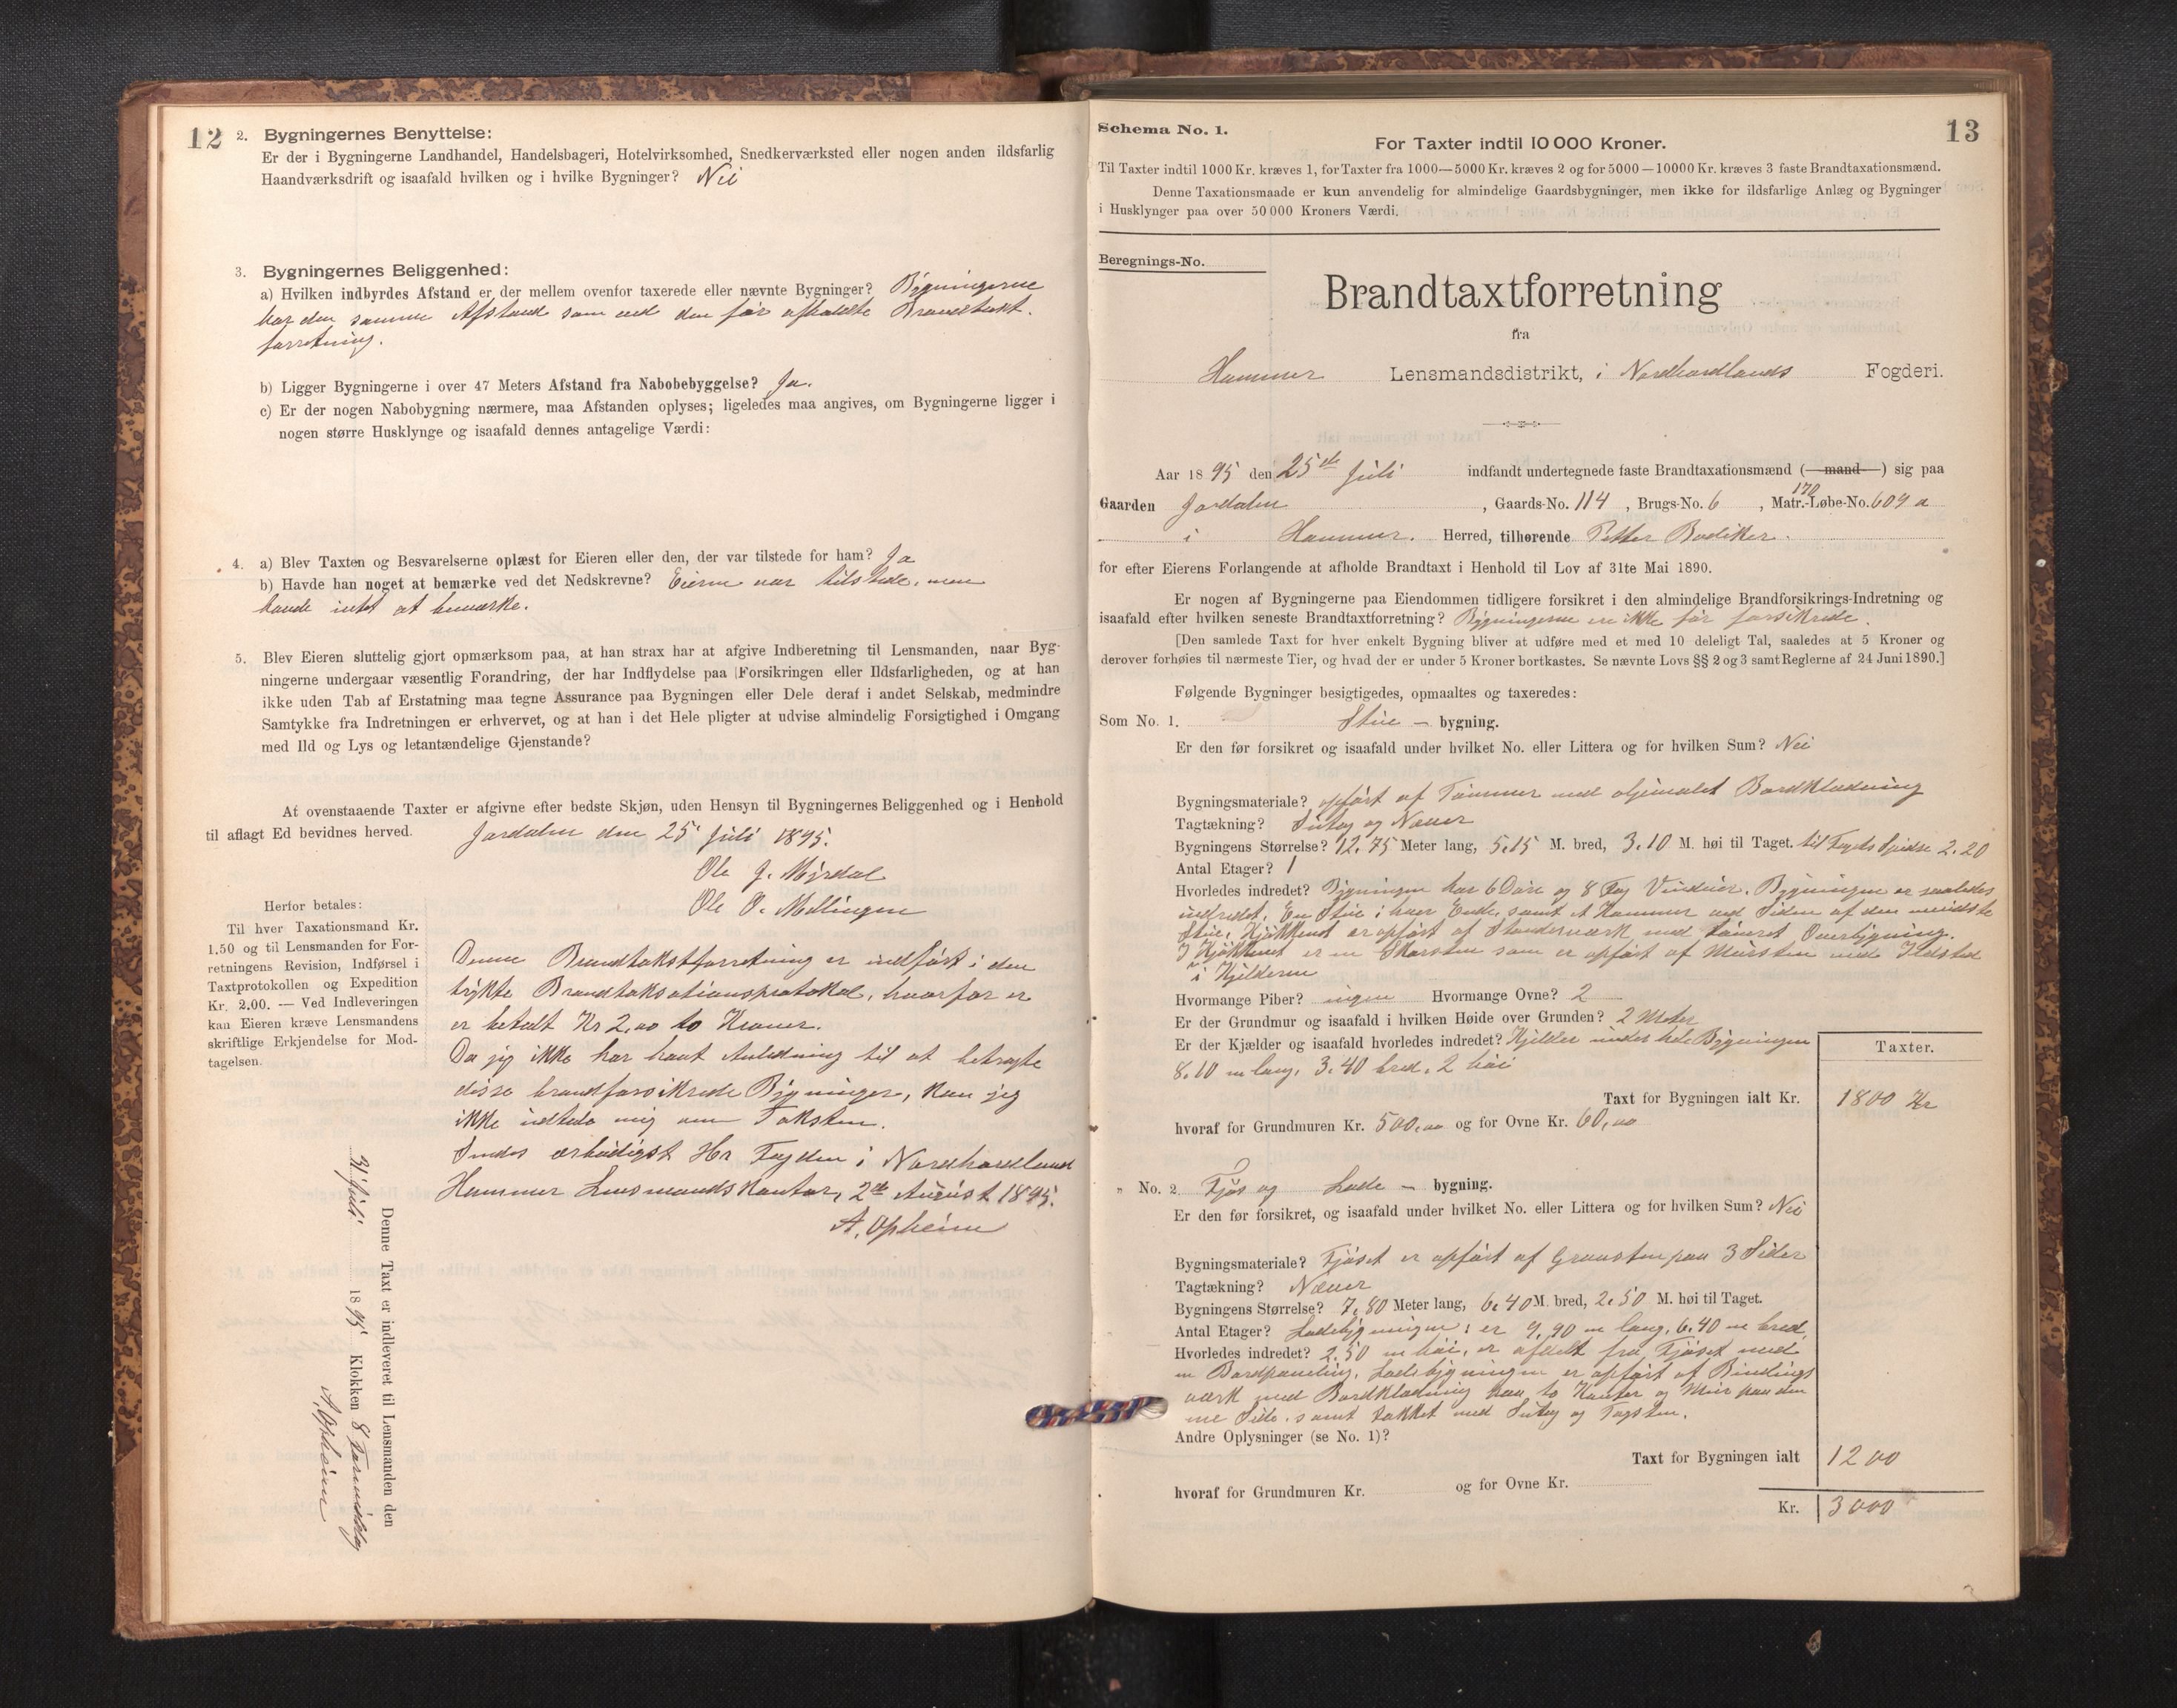 12
2. Bygningernes Benyttelse:
Er der i Bygningerne Landhandel, Handelsbageri, Hotelvirksomhed, Snedkerværksted eller nogen anden ildsfarlig
Haandværksdrift og isaafald hvilken og i hvilke Bygninger? Nei
3. Bygningernes Beliggenhed:
a) Hvilken indbyrdes Afstand er der mellem ovenfor taxerede eller nævnte Bygninger? Bygningerne
har den samme Afstand som ved den før afholdte Brandtakst-
forretning.
b) Ligger Bygningerne i over 47 Meters Afstand fra Nabobebyggelse? Ja.
c) Er der nogen Nabobygning nærmere, maa Afstanden oplyses; ligeledes maa angives, om Bygningerne ligger i
nogen større Husklynge og isaafald dennes antagelige Værdi:
4. a) Blev Taxten og Besvarelserne oplæst for Eieren eller den, der var tilstede for ham? Ja
b) Havde han noget at bemærke ved det Nedskrevne? Eieren var tilstede, men
havde intet at bemærke.
5. Blev Eieren sluttelig gjort opmærksom paa, at han strax har at afgive Indberetning til Lensmanden, naar Byg-
ningerne undergaar væsentlig Forandring, der har Indflydelse paa Forsikringen eller Ildsfarligheden, og at han
ikke uden Tab af Erstatning maa tegne Assurance paa Bygningen eller Dele deraf i andet Selskab, medmindre
Samtykke fra Indretningen er erhvervet, og at han i det Hele pligter at udvise almindelig Forsigtighed i Omgang
med Ild og Lys og letantændelige Gjenstande?
At ovenstaaende Taxter er afgivne efter bedste Skjøn, uden Hensyn til Bygningernes Beliggenhed og i Henhold
til aflagt Ed bevidnes herved. Jordalen den 25' Juli 1895.
Ole J. Myrdal
Ole O. Mellingen
Herfor betales:
Til hver Taxationsmand Kr.
1.50 og til Lensmanden for For-
retningens Revision, Indførsel i
Taxtprotokollen og Expedition
Kr. 2.00. — Ved Indleveringen
kan Eieren kræve Lensmandens
skriftlige Erkjendelse for Mod-
tagelsen.
Denne Brandtakstforretning er indført i den
trykte Brandtaksationsprotokol, hvorfor er
er betalt Kr 2,00 to Kroner.
Da jeg ikke har havt Anledning til at betragte
disse brandforsikrede Bygninger, kan jeg
ikke udtale mig om Taksten.
Sendes ærbødigst Hr Fogden i Nordhordland
Hammer Lensmandskontor, 2de August 1895.
A. Opheim
Denne Taxt er indleveret til Lensmanden den
31 Juli 1895 Klokken 8 Formiddag
A. Opheim
13
Schema No. 1.
For Taxter indtil 10 000 Kroner.
Til Taxter indtil 1000 Kr. kræves 1, for Taxter fra 1000—5000 Kr. kræves 2 og for 5000—10000 Kr. kræves 3 faste Brandtaxationsmænd.
Denne Taxationsmaade er kun anvendelig for almindelige Gaardsbygninger, men ikke for ildsfarlige Anlæg og Bygninger
i Husklynger paa over 50 000 Kroners Værdi.
Beregnings-No.
Brandtaxtforretning
fra
Hammer Lensmandsdistrikt, i Nordhordlands Fogderi.
Aar 1895 den 25de Juli indfandt undertegnede faste Brandtaxationsmænd (mand) sig paa
Gaarden Jordalen, Gaards-No. 114, Brugs-No. 6, Matr.-Løbe-No. 170 609 a
i Hammer. Herred, tilhørende Petter Bødiker.
for efter Eierens Forlangende at afholde Brandtaxt i Henhold til Lov af 31te Mai 1890.
Er nogen af Bygningerne paa Eiendommen tidligere forsikret i den almindelige Brandforsikrings-Indretning og
isaafald efter hvilken seneste Brandtaxtforretning? Bygningerne er ikke før forsikrede.
[Den samlede Taxt for hver enkelt Bygning bliver at udføre med et med 10 deleligt Tal, saaledes at 5 Kroner og
derover forhøies til nærmeste Tier, og hvad der er under 5 Kroner bortkastes. Se nævnte Lovs §§ 2 og 3 samt Reglerne af 24 Juni 1890.]
Følgende Bygninger besigtigedes, opmaaltes og taxeredes:
Som No. 1. Stue – bygning.
Er den før forsikret og isaafald under hvilket No. eller Littera og for hvilken Sum? Nei
Bygningsmateriale? opført af Tømmer med oljemalet Bordklædning
Tagtækning? Sutag og Næver
Bygningens Størrelse? 12.75 Meter lang, 5.15 M. bred, 3.10 M. høi til Taget. til Tagets Spidse 2.20
Antal Etager? 1
Hvorledes indredet? Bygningen har 6 Døre og 8 Fag Vinduer. Bygningen er saaledes
indredet. En Stue i hver Ende, samt et Kammer ved Siden af den mindste
Stue. Kjøkkenet er opført af Standerværk med tømret Overbygning.
I Kjøkkenet er en Skorsten som er opført af Mursten med Ildsted
i Kjelderen
Hvormange Piber? ingen Hvormange Ovne? 2
Er der Grundmur og isaafald i hvilken Høide over Grunden? 2 Meter
Er der Kjælder og isaafald hvorledes indredet? Kjelder under hele Bygningen
8.10 m lang, 3.40 bred, 2 høi
Taxter.
Taxt for Bygningen ialt Kr. 1800 Kr
hvoraf for Grundmuren Kr. 500,00 og for Ovne Kr. 60,00
„ No. 2. Fjøs og Lade – bygning.
Er den før forsikret, og isaafald under hvilket No. eller Littera og for hvilken Sum? Nei
Bygningsmateriale? Fjøset er opført af Graasten paa 3 Sider
Tagtækning? Næver
Bygningens Størrelse? 7.80 Meter lang, 6.40 M. bred, 2.50 M. høi til Taget.
Antal Etager? Ladebygningen: er 9.90 m lang, 6.40 m bred,
Hvorledes indredet? 2.50 m høi, er afdelt fra Fjøset med
en Bordpaneling. Ladebygningen er opført af Bindings
værk med Bordklædning paa to Kanter og Mur paa den
ene Side, samt takket med Sutag og Tagsten.
Andre Oplysninger (se No. 1)?
Taxt for Bygningen ialt 1200
hvoraf for Grundmuren Kr. og for Ovne Kr.
Kr. 3000